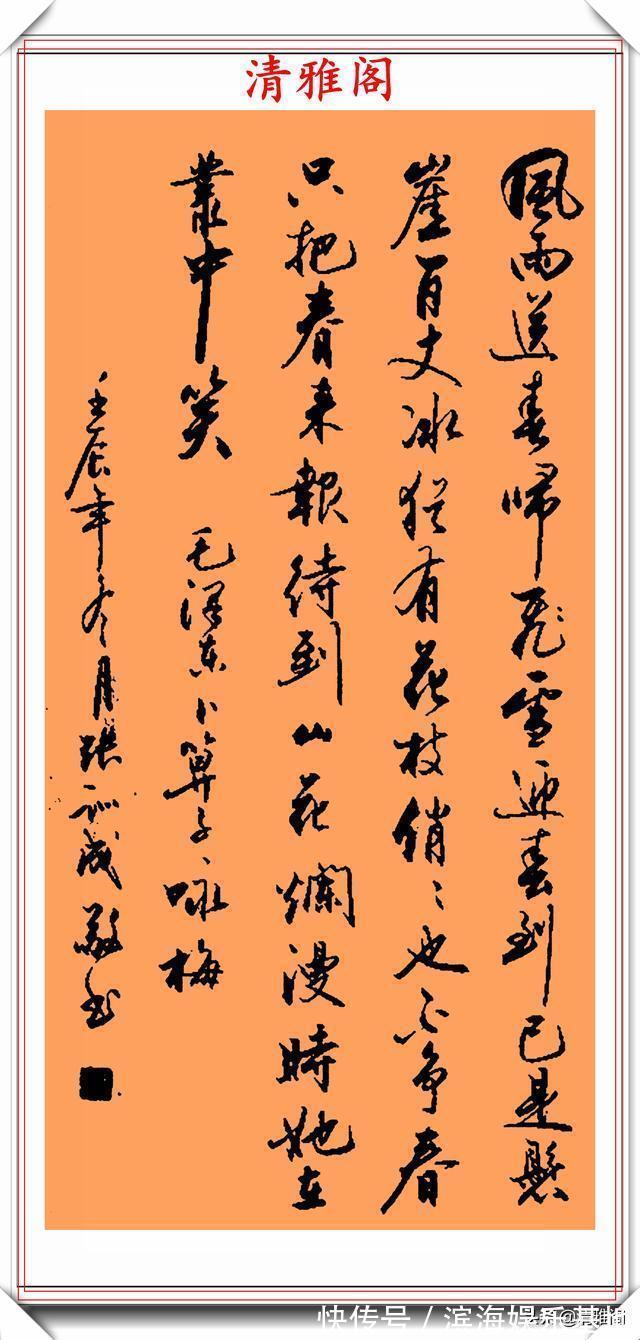 清雅阁
風雨送春歸飛雪迎春到已是懸
崖百丈冰犹有花枝俏〻也不争春
只把春来報待到山花爛漫時她在
叢中笑 毛澤东卜算子咏梅
壬辰年冬月張訓成敬书
快传号 / 滨海娱乐